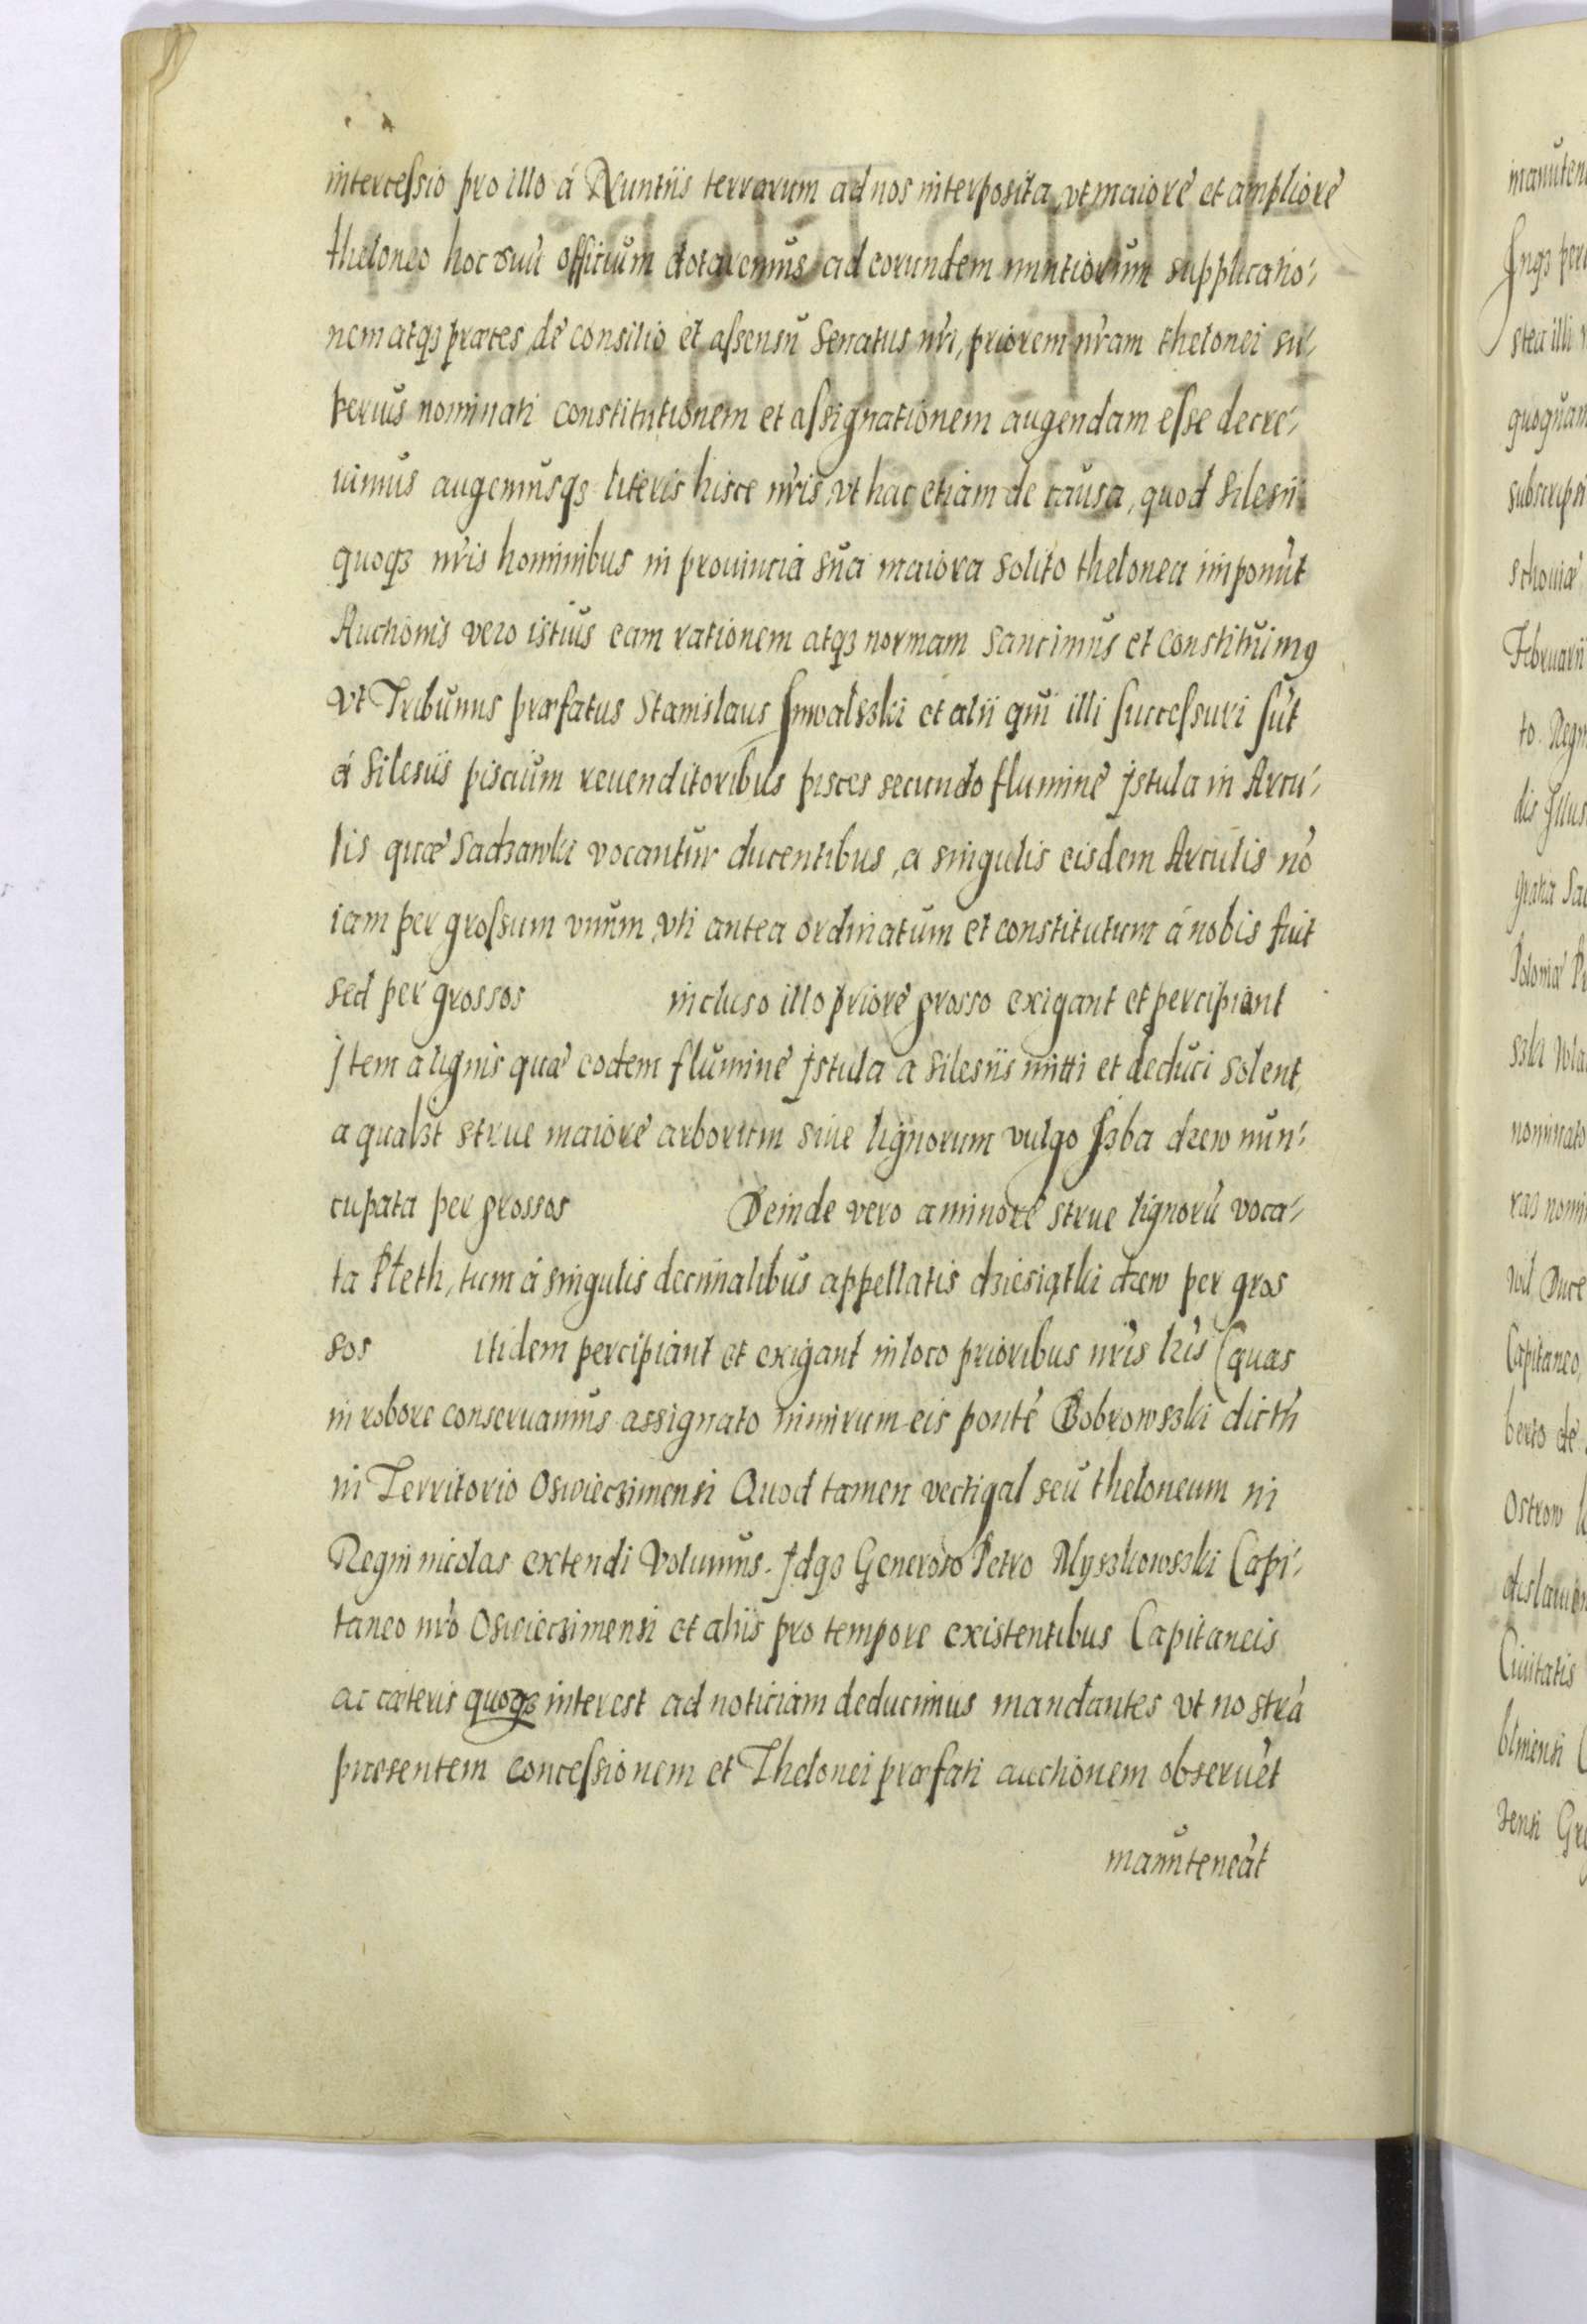 intercessio pro illo á Nuntiis terrarum ad nos interposita, vt maiorè et ampliorè
theloneo hoc suũ officium dotaremus, ad eorundem nuntiorum supplicatio-
nem atq3 præces, de consilio et assensu Senatus nr̃i, priorem nr̃am thelonei su-
perius nominati constitutionem et assignationem augendam esse decre-
uimus augemusq3 literis hisce nr̃is, vt hac etiam de causa, quod Silesii
quoq3 nr̃is hominibus in prouincia sua maiora solito thelonea imponũt
Auctionis vero istius eam rationem atq3 normam sancimus et constituimus
Vt Tribunus præfatus Stanislaus Inwalski et alii qui illi successuri sũt
á Silesiis piscium reuenditoribus pisces secundo flumine Istula in Arcu-
lis quæ Sadzawki vocantur ducentibus, a singulis eisdem Arculis nõ
iam per grossum vnum, vti antea ordinatum et constitutum á nobis fuit
sed per grossos incluso illo priore grosso exigant et percipiant
Item a lignis quæ eodem flumine Istula a Silesiis mitti et deduci solent,
a qual3t strue maiore arborum siue lignorum vulgo Izba drzew nun-
cupata per grossos Deinde vero a minore strue lignorũ voca-
ta Płeth, tum á singulis decimalibus appellatis dziesiątki drzew per gros
sos itidem percipiant et exigant in loco prioribus nr̃is lr̃is (quas
in robore conseruamus assignato nimirum eis ponte Bobrowski dicto
in Territorio Oswieczimensi Quod tamen vectigal seu theloneum in
Regni incolas extendi Volumus. Idq3 Generoso Petro Myszkowski Capi-
taneo nr̃o Oswieczimensi et aliis pro tempore existentibus Capitaneis
ac cæteris quoq3 interest ad noticiam deducimus mandantes vt nostrã
præsentem concessionem et Thelonei præfati auctionem obseruẽt
manuteneãt